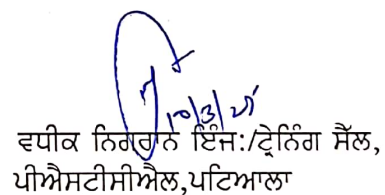 10/3/25
ਵਧੀਕ ਨਿਗਰਾਨ ਇੰਜ:/ਟ੍ਰੇਨਿੰਗ ਸੈੱਲ,
ਪੀਐਸਟੀਸੀਐਲ,ਪਟਿਆਲਾ